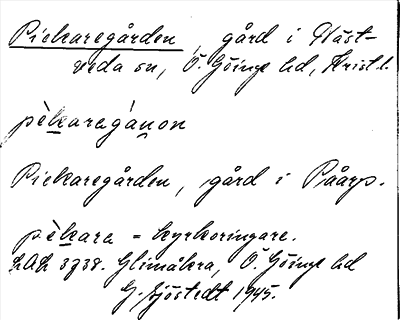 Pickaregården, gård i Häst-
veda sn, Ö. Göinge hd, Krist.l.
pèkaragánon
Pickaregården, gård i Påarp.
pèkara = kyrkoringare.
LAL 3738. Glimåkra, Ö. Göinge hd
G. Sjöstedt 1945.